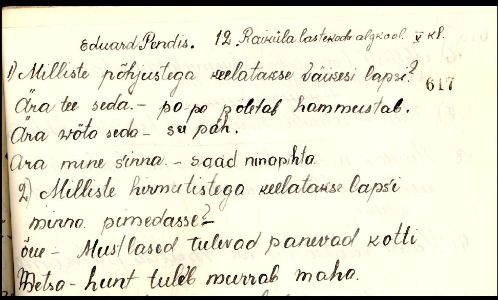 Eduard Pendis. 12. Raikküla lastekodu algkool. V kl.
1) Milliste põhjustega keelatakse väikesi lapsi?
617
Ära tee seda. - po-po põletab hammustab.
Ära võta seda - see päh.
Ära mine sinna. - saad ninapihta
2) Milliste hirmutistega keelatakse lapsi
minna pimedasse?
õue - Mustlased tulevad panevad kotti
Metsa - hunt tuleb murrab maha.